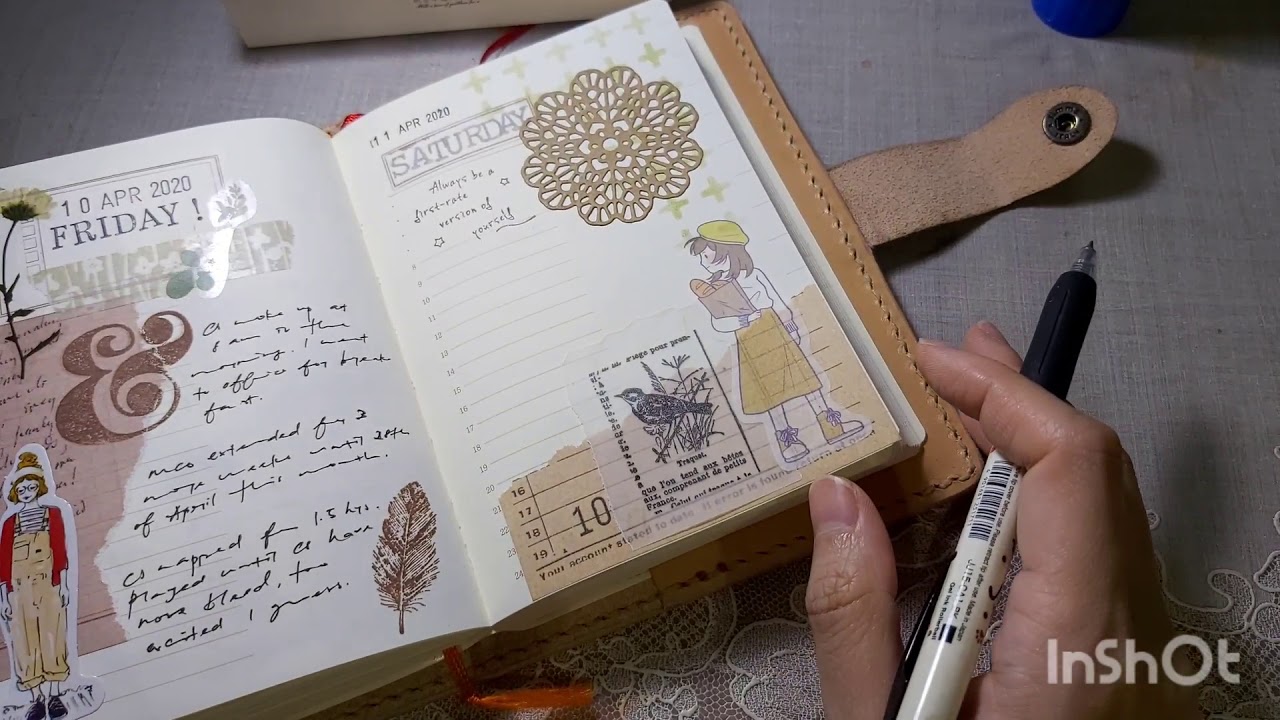 10 APR 2020
FRIDAY !
&
woke up at
am in the
morning. I went
to office for break
fast.
MCO extended for 2
more weeks until 28th
of April this month.
napped for 1.5 hrs.
played until have
nose bleed, too
excited I guess.
11 APR 2020
SATURDAY
Always be a
first-rate
version of
yourself
8
9
10
11
12
13
14
15
16
17
18
19
20
24
16
17
18
19
10
Your account stated to date. If error is found
Traquet.
que l'on tend aux bêtes
aux, comprenant de petits
France.
JUICE
InShOt